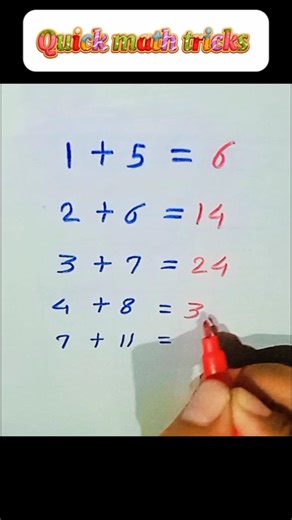 Quick math tricks
1 + 5 = 6
2 + 6 = 14
3 + 7 = 24
4 + 8 = 3
7 + 11 =